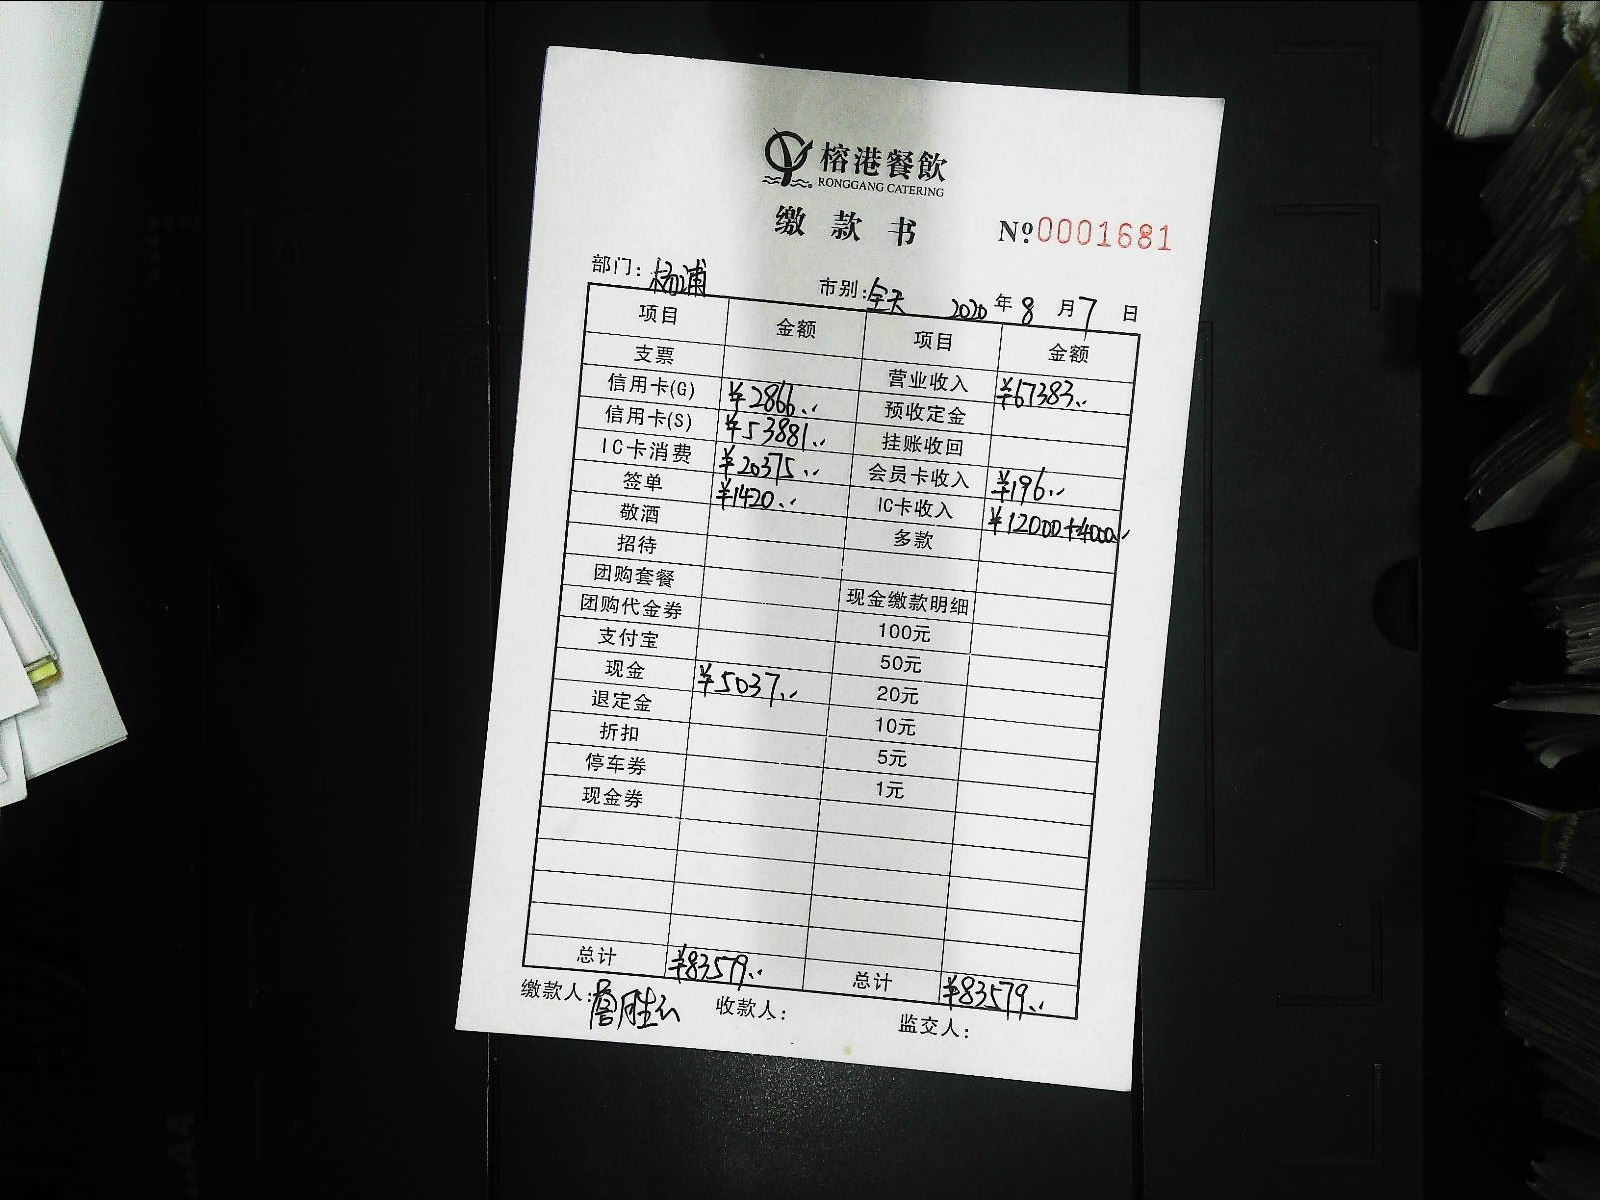 榕港餐飲
RONGGANG CATERING
缴款书 Nº0001681
部门：杨浦 市别：全天 2020年8月7日
项目 金额 项目 金额
支票 营业收入 ¥67383..
信用卡(G) ¥2866.. 预收定金
信用卡(S) ¥53881.. 挂账收回
IC卡消费 ¥20375.. 会员卡收入 ¥196..
签单 ¥1420.. IC卡收入 ¥12000+4000..
敬酒 多款
招待
团购套餐 现金缴款明细
团购代金券 100元
支付宝 50元
现金 ¥5037.. 20元
退定金 10元
折扣 5元
停车券 1元
现金券
总计 ¥83579.. 总计 ¥83579..
缴款人：詹胜云 收款人： 监交人：
A4